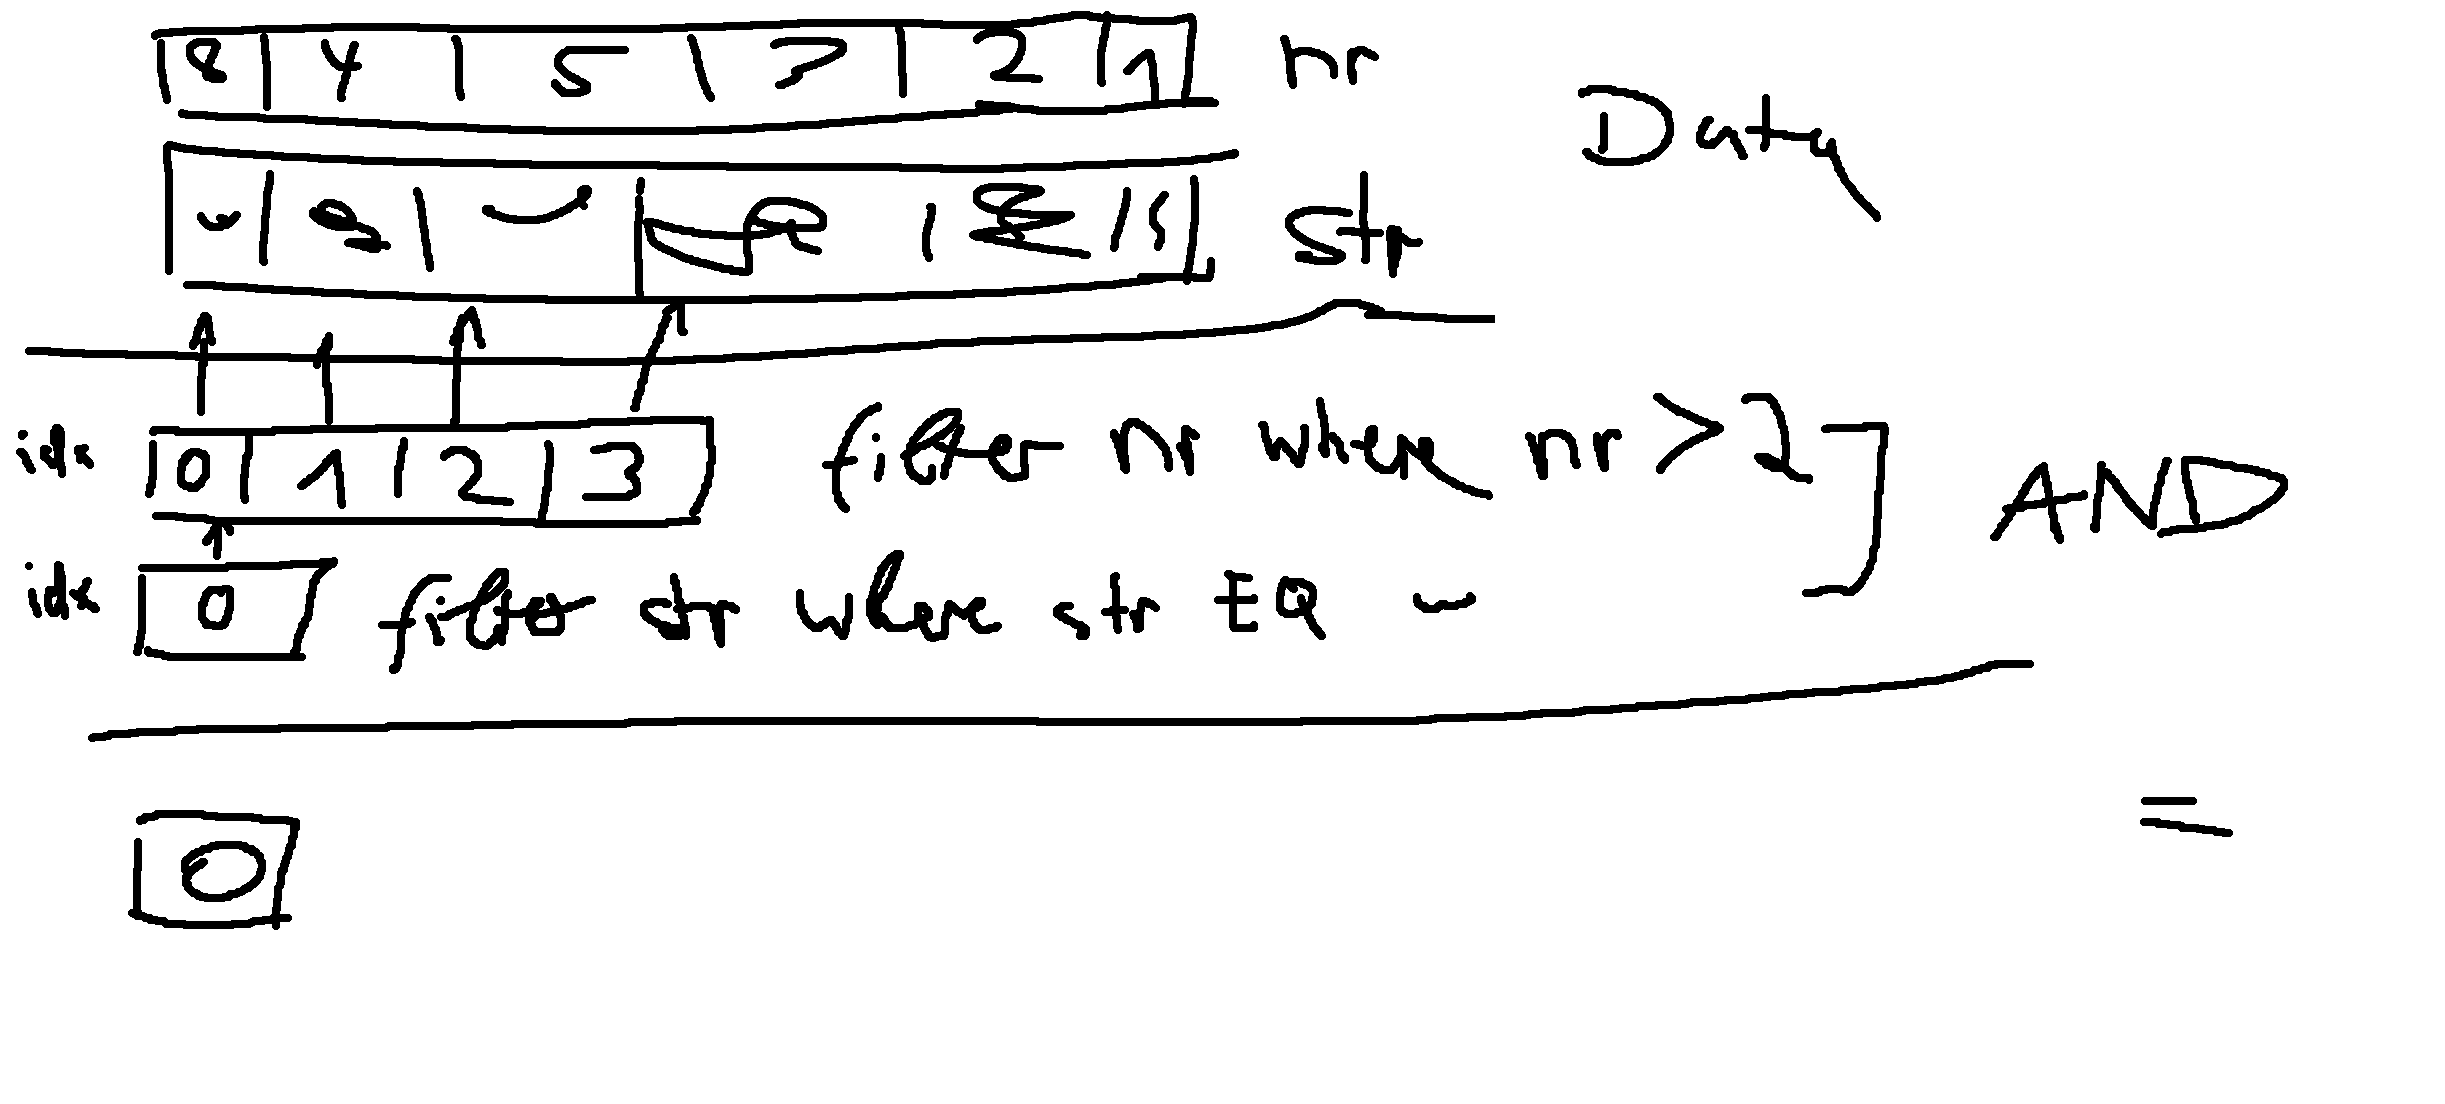 8 | 4 | 5 | 7 | 2 | 1 nr
Data
str
idx 0 | 1 | 2 | 3 filter nr where nr > 2
AND
idx 0 filter str where str EQ ~
=
0